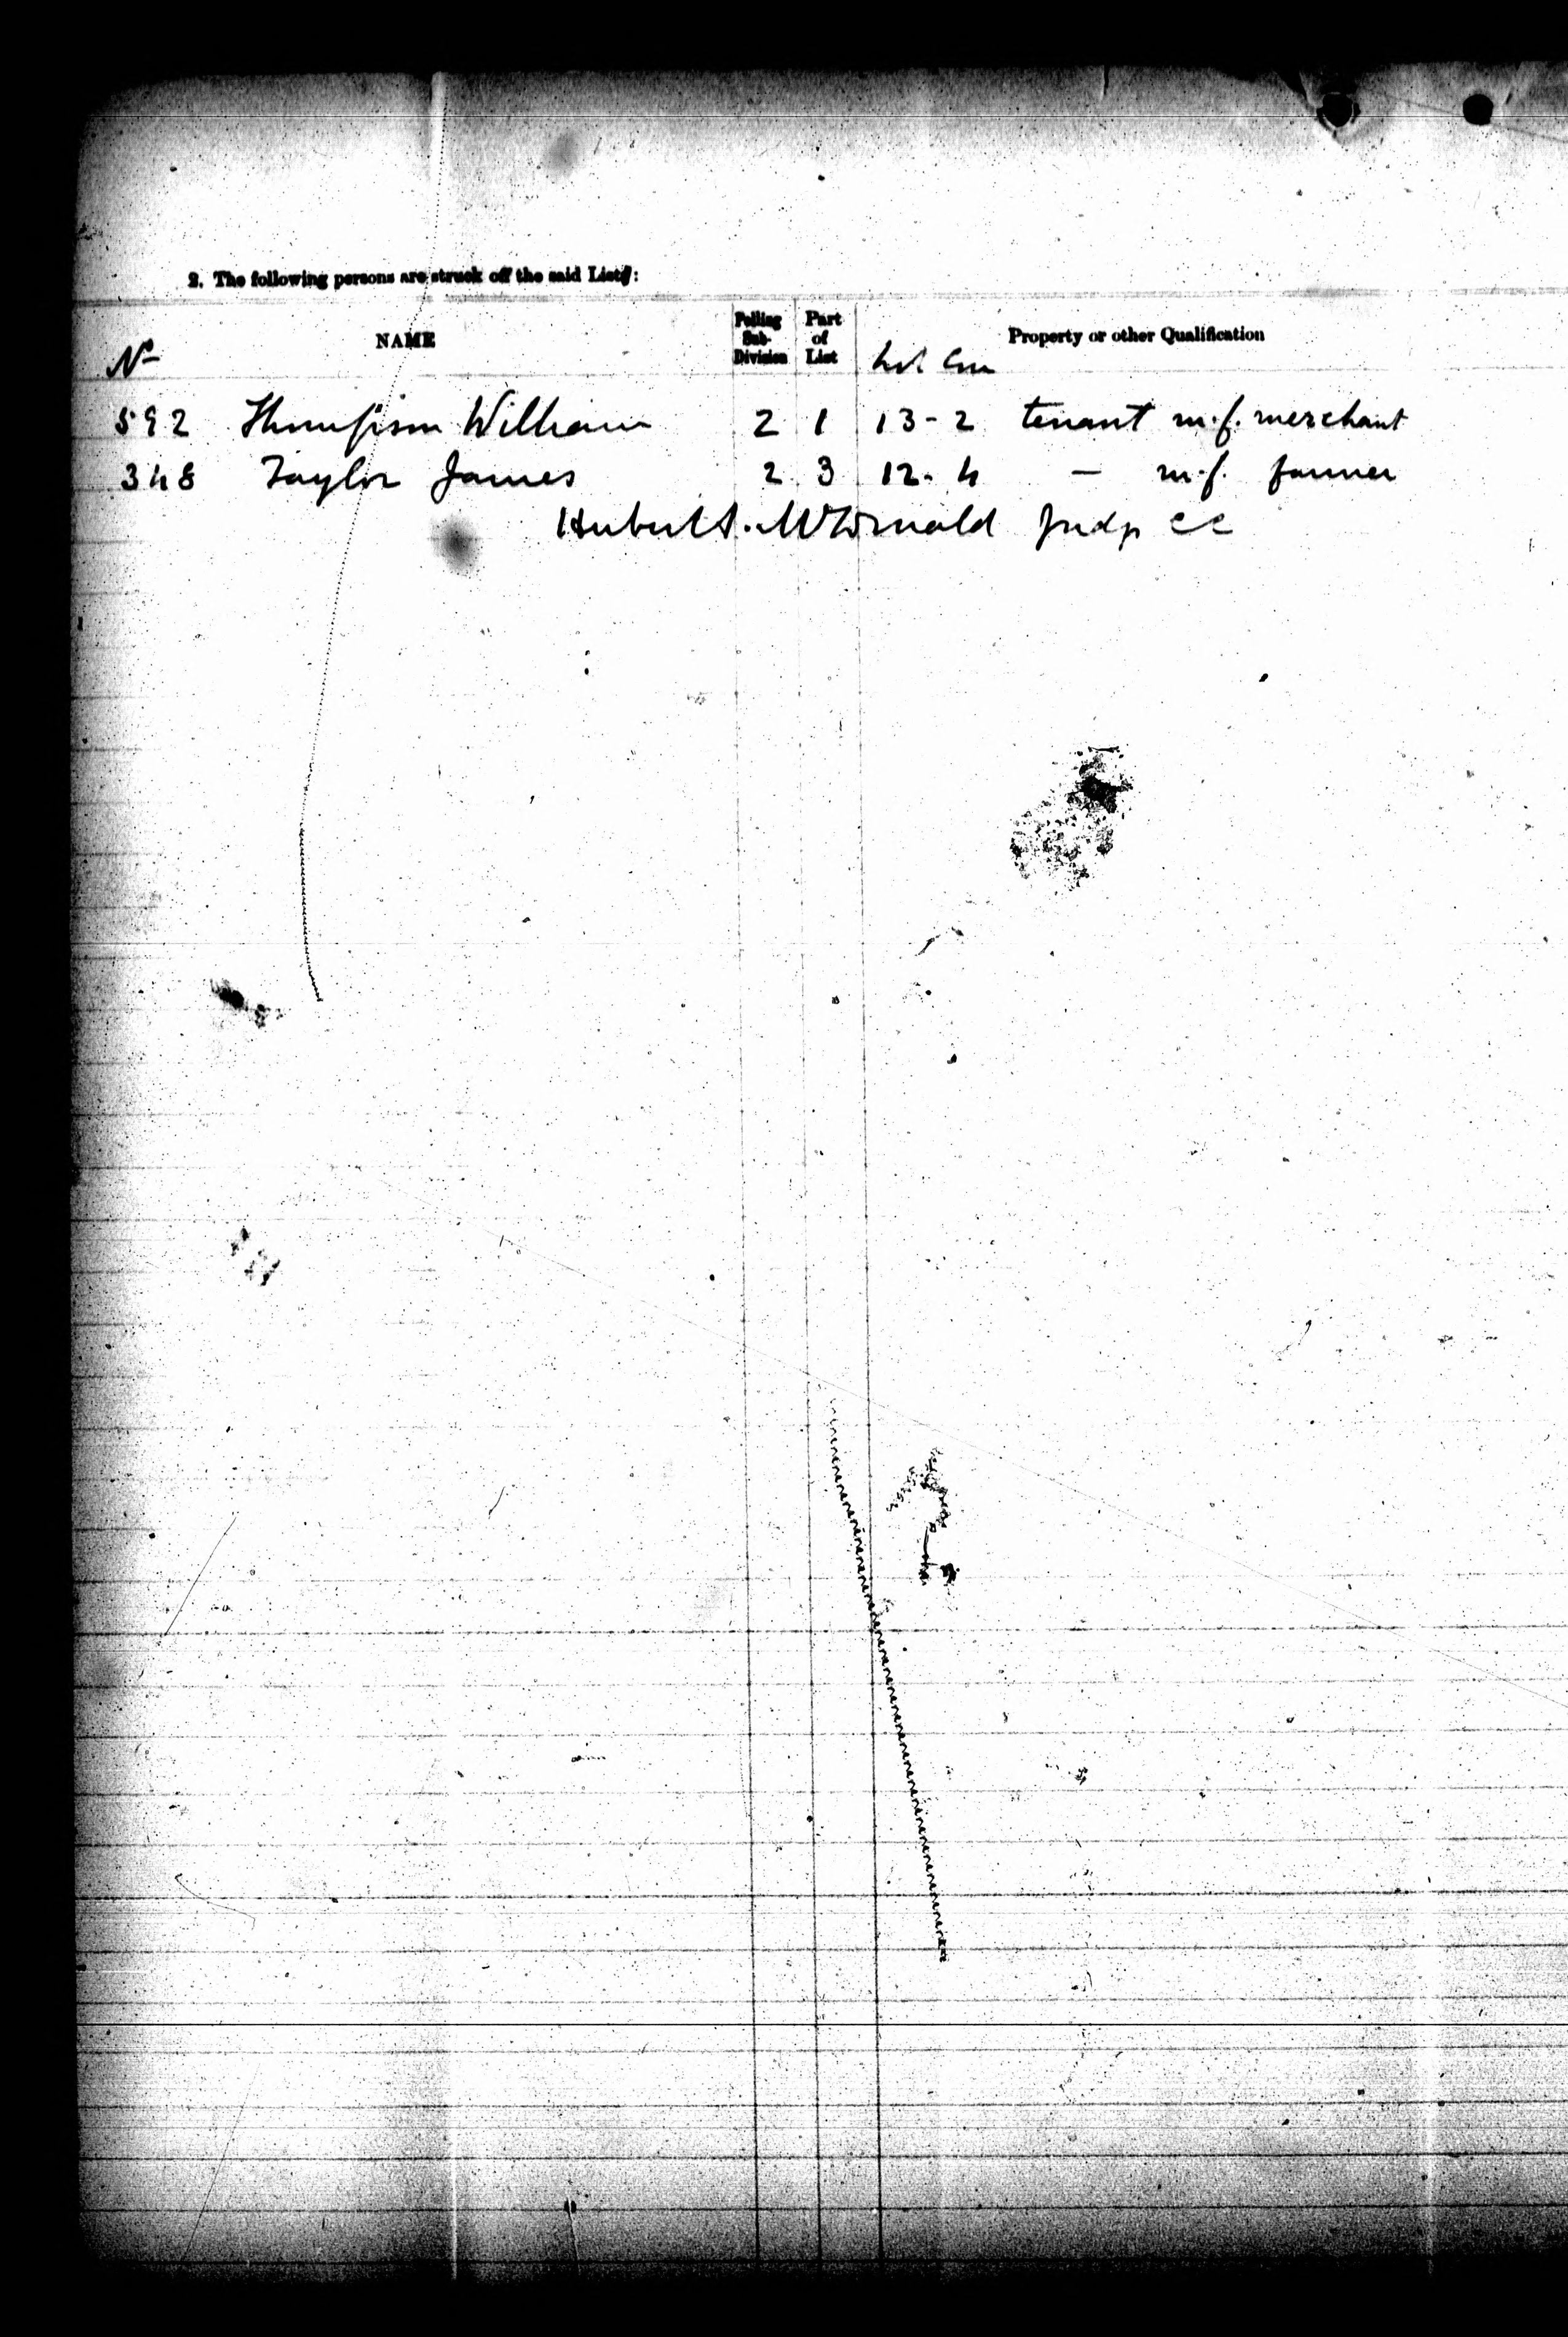 2. The following persons are struck off the said List:
No NAME Polling Sub-Division Part of List Lot Con Property or other Qualification
592 Thompson William 2 1 13-2 tenant m.f. merchant
348 Taylor James 2 3 12-4 — m.f. farmer
Hubert S. McDonald Judge CC